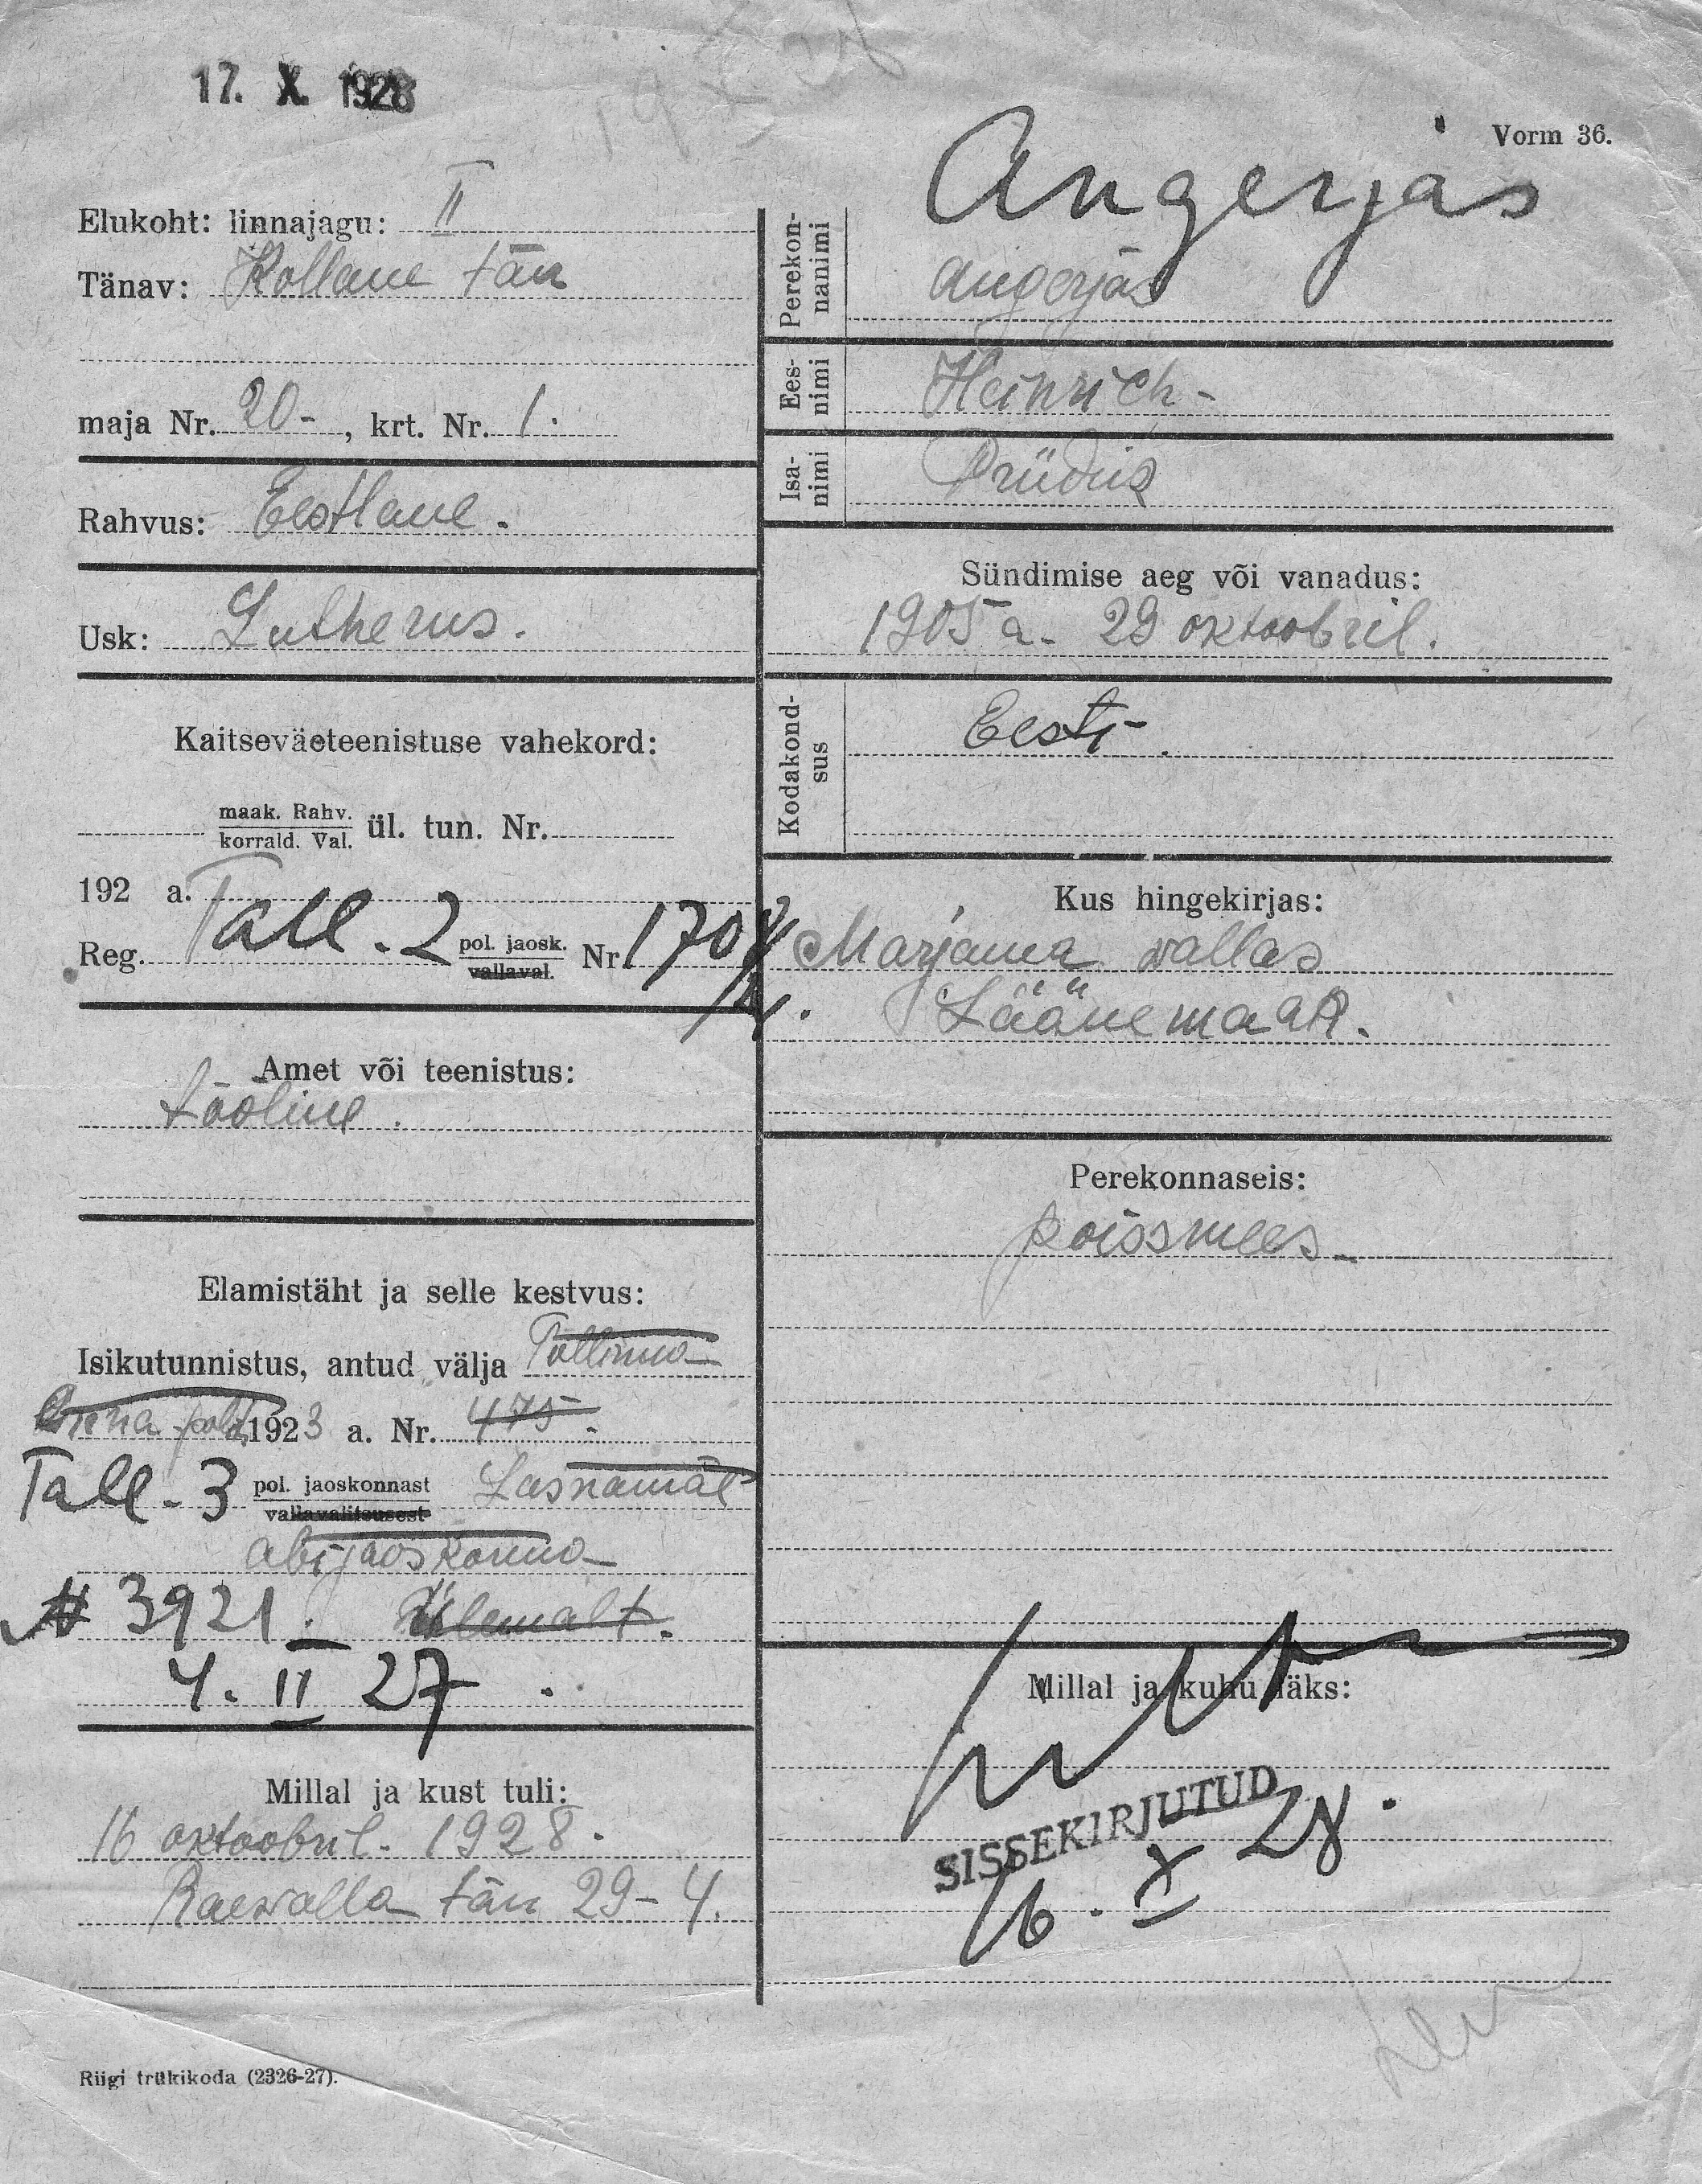 17. X. 1928
Vorm 36.
Elukoht: linnajagu: II
Tänav: Kollane tän
maja Nr. 20-, krt. Nr. 1.
Rahvus: Eestlane.
Usk: Lutherus.
Kaitseväeteenistuse vahekord:
maak. Rahv.
korrald. Val. ül. tun. Nr.
192 a.
Reg. Tall. 2 pol. jaosk. Nr 1708
vallaval.
Amet või teenistus:
tööline.
Elamistäht ja selle kestvus:
Isikutunnistus, antud välja Tallinna
1923 a. Nr. 475.
Tall. 3 pol. jaoskonnast Lasnamäe
vallavalitsusest
abijaoskonna
№ 3921. ülemalt.
4. II 27.
Millal ja kust tuli:
16 oktoobril. 1928.
Raewalla tän 29-4.
Riigi trükikoda (2326-27).
Angerjas
Perekon-
nanimi
Angerjas
Ees-
nimi
Heinrich-
Isa-
nimi
Priidik
Sündimise aeg või vanadus:
1905 a. 29 oktoobril.
Kodakond-
sus
Eesti.
Kus hingekirjas:
Marjama wallas
Läänemaal.
Perekonnaseis:
poissmees
Millal ja kuhu läks:
SISSEKIRJUTUD
16. X 28.